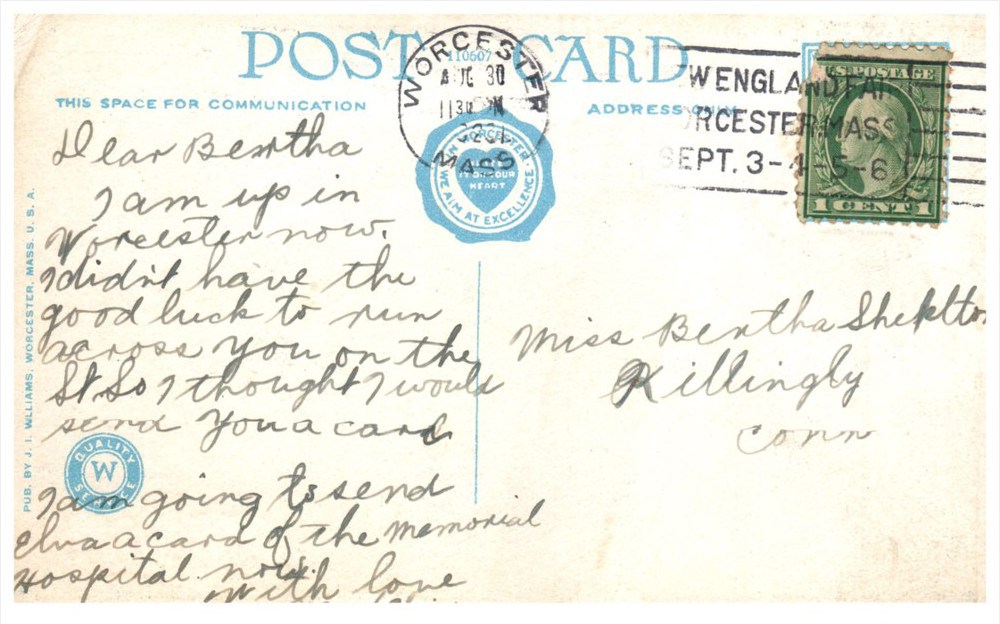 POST CARD
110607
THIS SPACE FOR COMMUNICATION
ADDRESS ONLY
WORCESTER
AUG 30
1130 PM
MASS
W ENGLAND FAIR
ORCESTER, MASS
SEPT. 3-4-5-6
U.S. POSTAGE
1 CENT 1
IN WORCESTER
HEART
WE AIM AT EXCELLENCE
Dear Bertha
I am up in
Worcester now.
I didn't have the
good luck to run
across you on the
St So I thought I would
send you a card
I am going to send
Elva a card of the Memorial
Hospital now.
With love
Miss Bertha Sheldon
Killingly
Conn
QUALITY
W
SERVICE
PUB. BY J. I. WILLIAMS, WORCESTER, MASS. U. S. A.